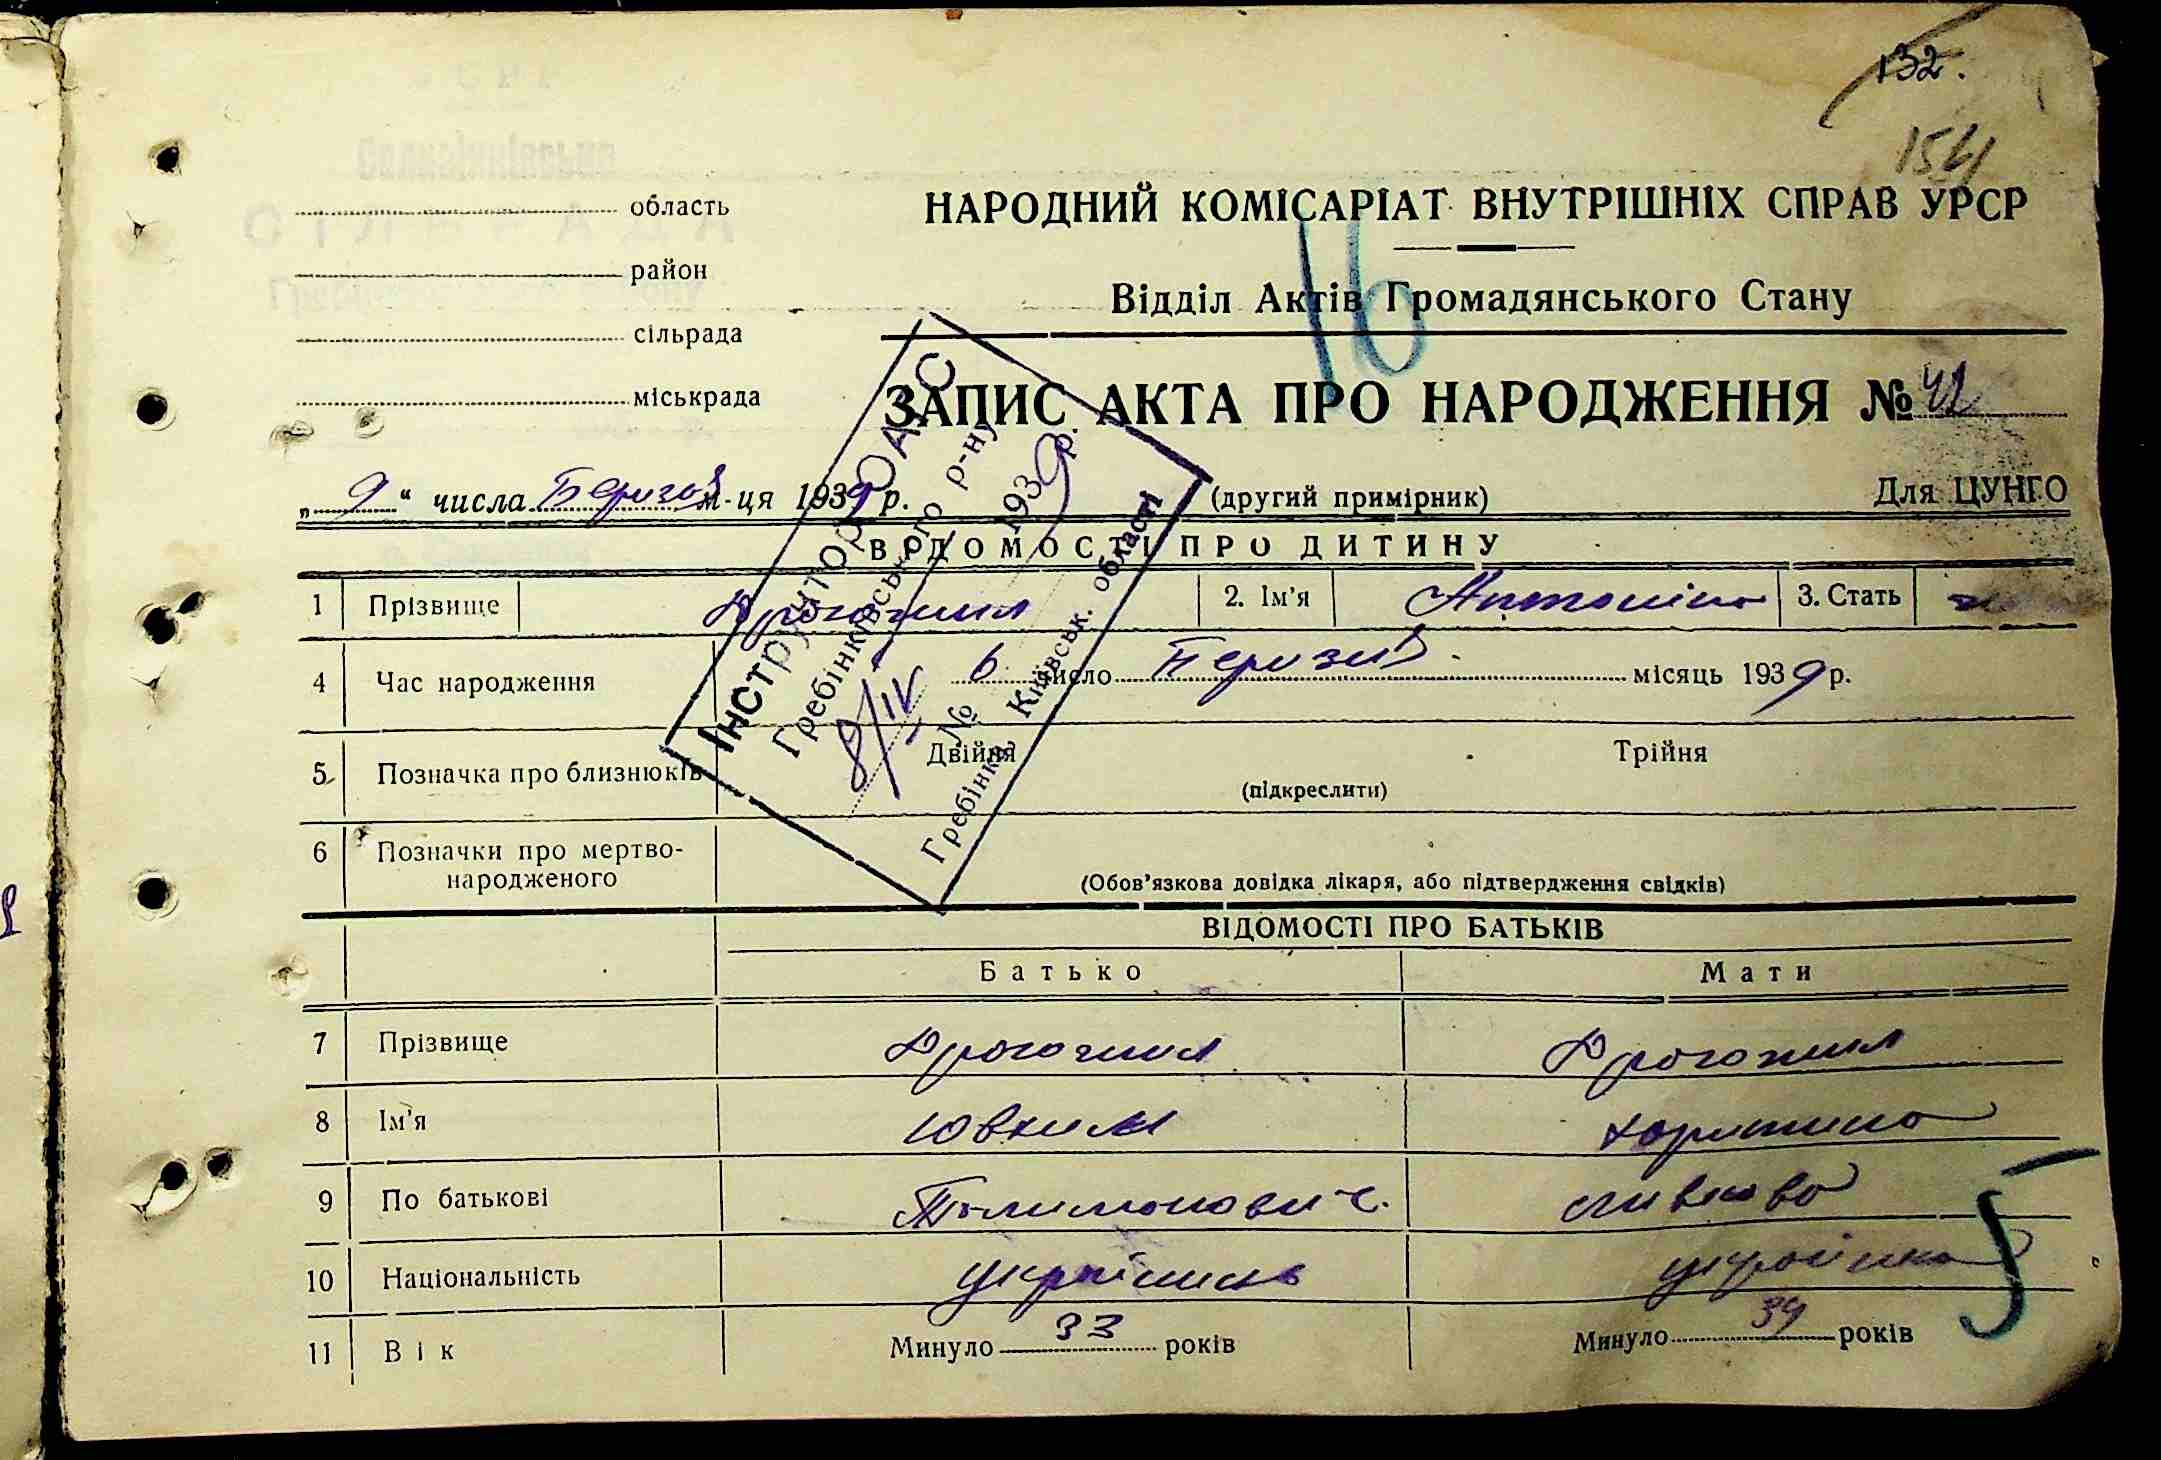 132.
154
область
район
сільрада
міськрада
НАРОДНИЙ КОМІСАРІАТ ВНУТРІШНІХ СПРАВ УРСР
16
Відділ Актів Громадянського Стану
ЗАПИС АКТА ПРО НАРОДЖЕННЯ № 42
„9“ числа Березня м-ця 1939 р.
(другий примірник)
Для ЦУНГО
Інструктор ОАГС
Гребінківського р-ну
8/IV 1939 р.
№
Гребінка, Київськ. області
ВІДОМОСТІ ПРО ДИТИНУ
1 Прізвище Дрогожил 2. Ім'я Антоніна 3. Стать
4 Час народження 6 число місяць 1939 р.
5 Позначка про близнюків Двійня Трійня
(підкреслити)
6 Позначки про мертво-
народженого
(Обов'язкова довідка лікаря, або підтвердження свідків)
ВІДОМОСТІ ПРО БАТЬКІВ
Батько Мати
7 Прізвище Дрогожил Дрогожил
8 Ім'я Ювхим
9 По батькові
10 Національність українець українка
5
11 Вік Минуло 33 років Минуло 39 років